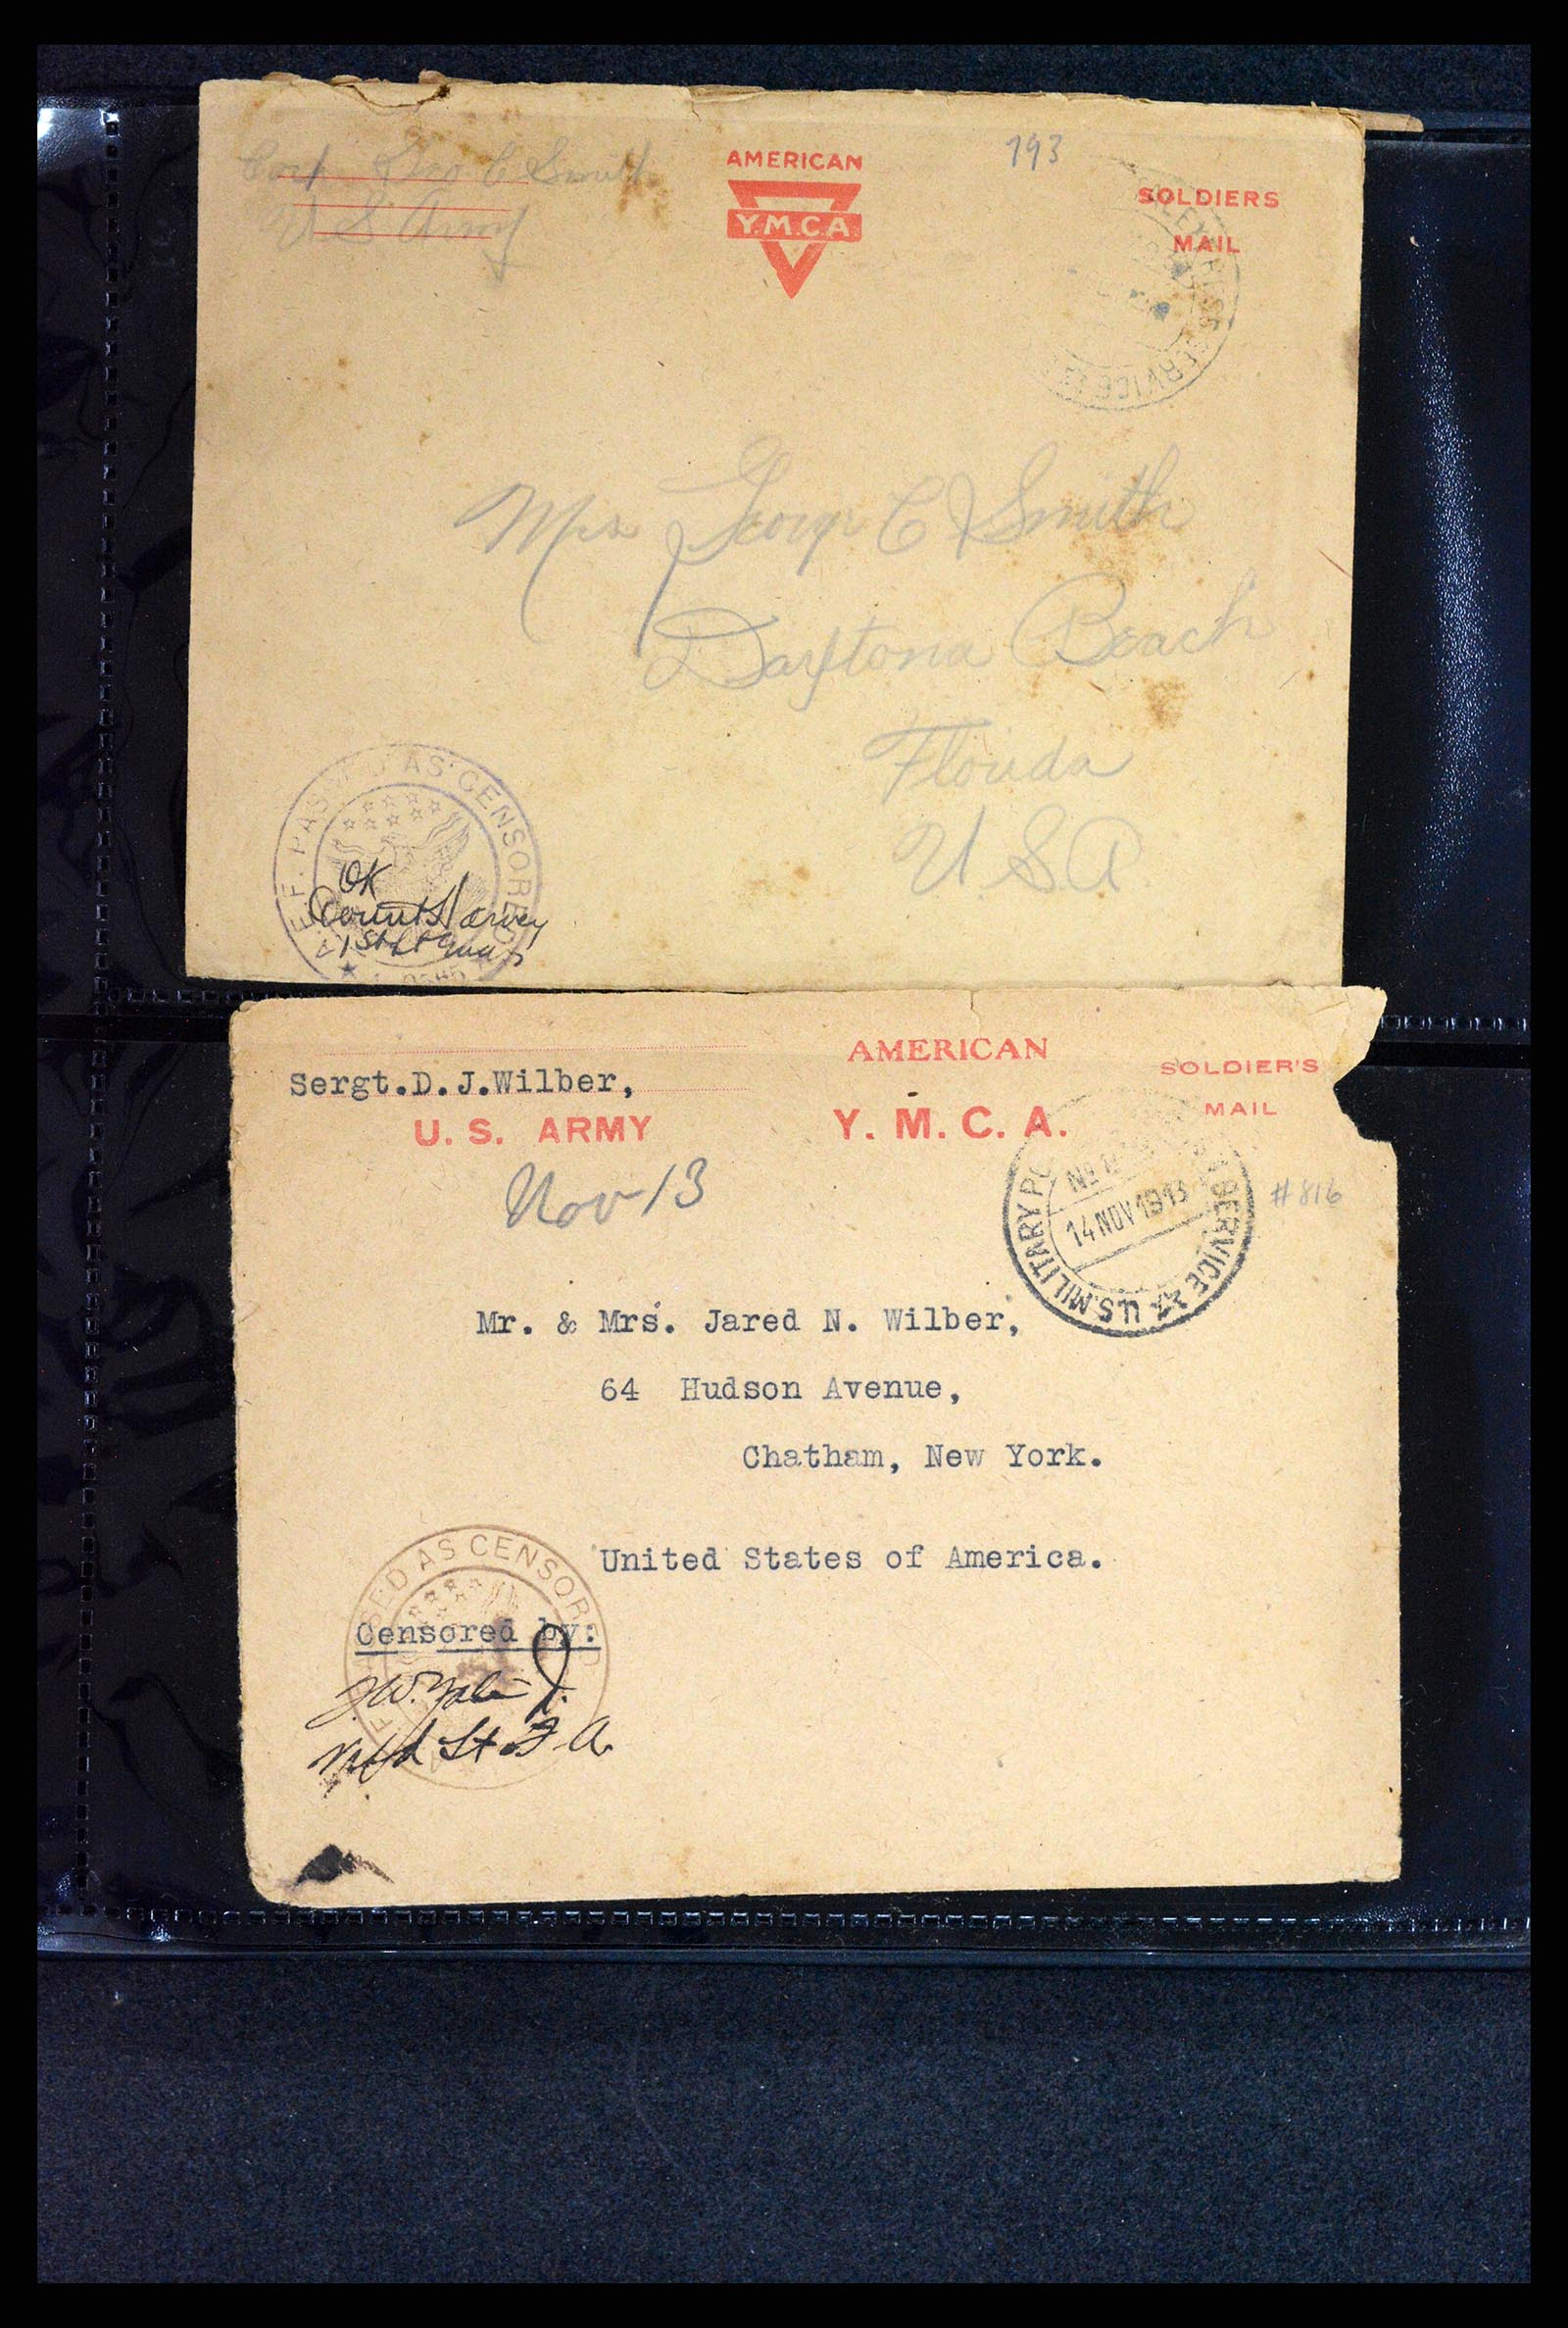 Geo C Smith
U S Army
AMERICAN
Y.M.C.A.
193
SOLDIERS
MAIL
SERVICE
Mrs George C Smith
Daytona Beach
Florida
U S A
PASSED AS CENSORED
OK
Harvey
1st Lt
AMERICAN
Y. M. C. A.
SOLDIER'S
MAIL
Sergt.D.J.Wilber,
U. S. ARMY
Nov 13
U.S. MILITARY SERVICE
14 NOV 1913
#816
Mr. & Mrs. Jared N. Wilber,
64 Hudson Avenue,
Chatham, New York.
United States of America.
PASSED AS CENSORED
Censored by:
J.W.
Lt F.A.